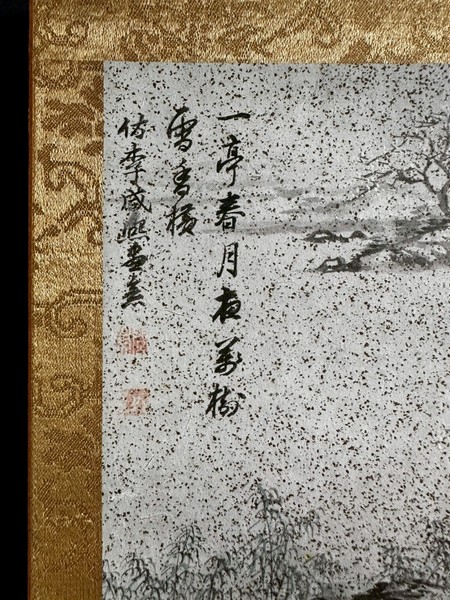 一亭春月夜萬樹
雪香橫
仿李咸熙畫意